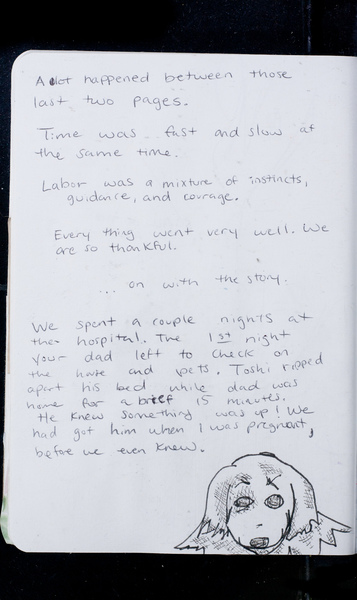 A lot happened between those
last two pages.
Time was fast and slow at
the same time.
Labor was a mixture of instincts,
guidance, and courage.
Every thing went very well. We
are so thankful.
... on with the story.
We spent a couple nights at
the hospital. The 1st night
your dad left to check on
the house and pets. Toshi ripped
apart his bed while dad was
home for a brief 15 minutes.
He knew something was up! We
had got him when I was pregnant,
before we even knew.